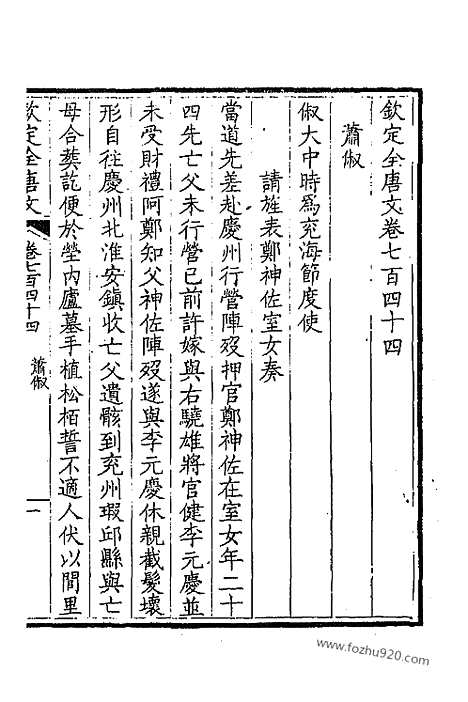 欽定全唐文卷七百四十四
蕭俶
俶大中時爲兖海節度使
請旌表鄭神佐室女奏
當道先差赴慶州行營陣歿押官鄭神佐在室女年二十
四先亡父未行營已前許嫁與右驍雄將官健李元慶並
未受財禮阿鄭知父神佐陣歿遂與李元慶休親截髮壞
形自往慶州北淮安鎮收亡父遺骸到兖州瑕邱縣與亡
母合葬訖便於塋内廬墓手植松栢誓不適人伏以閭里
欽定全唐文
卷七百四十四
蕭俶
一
www.fozhu920.com